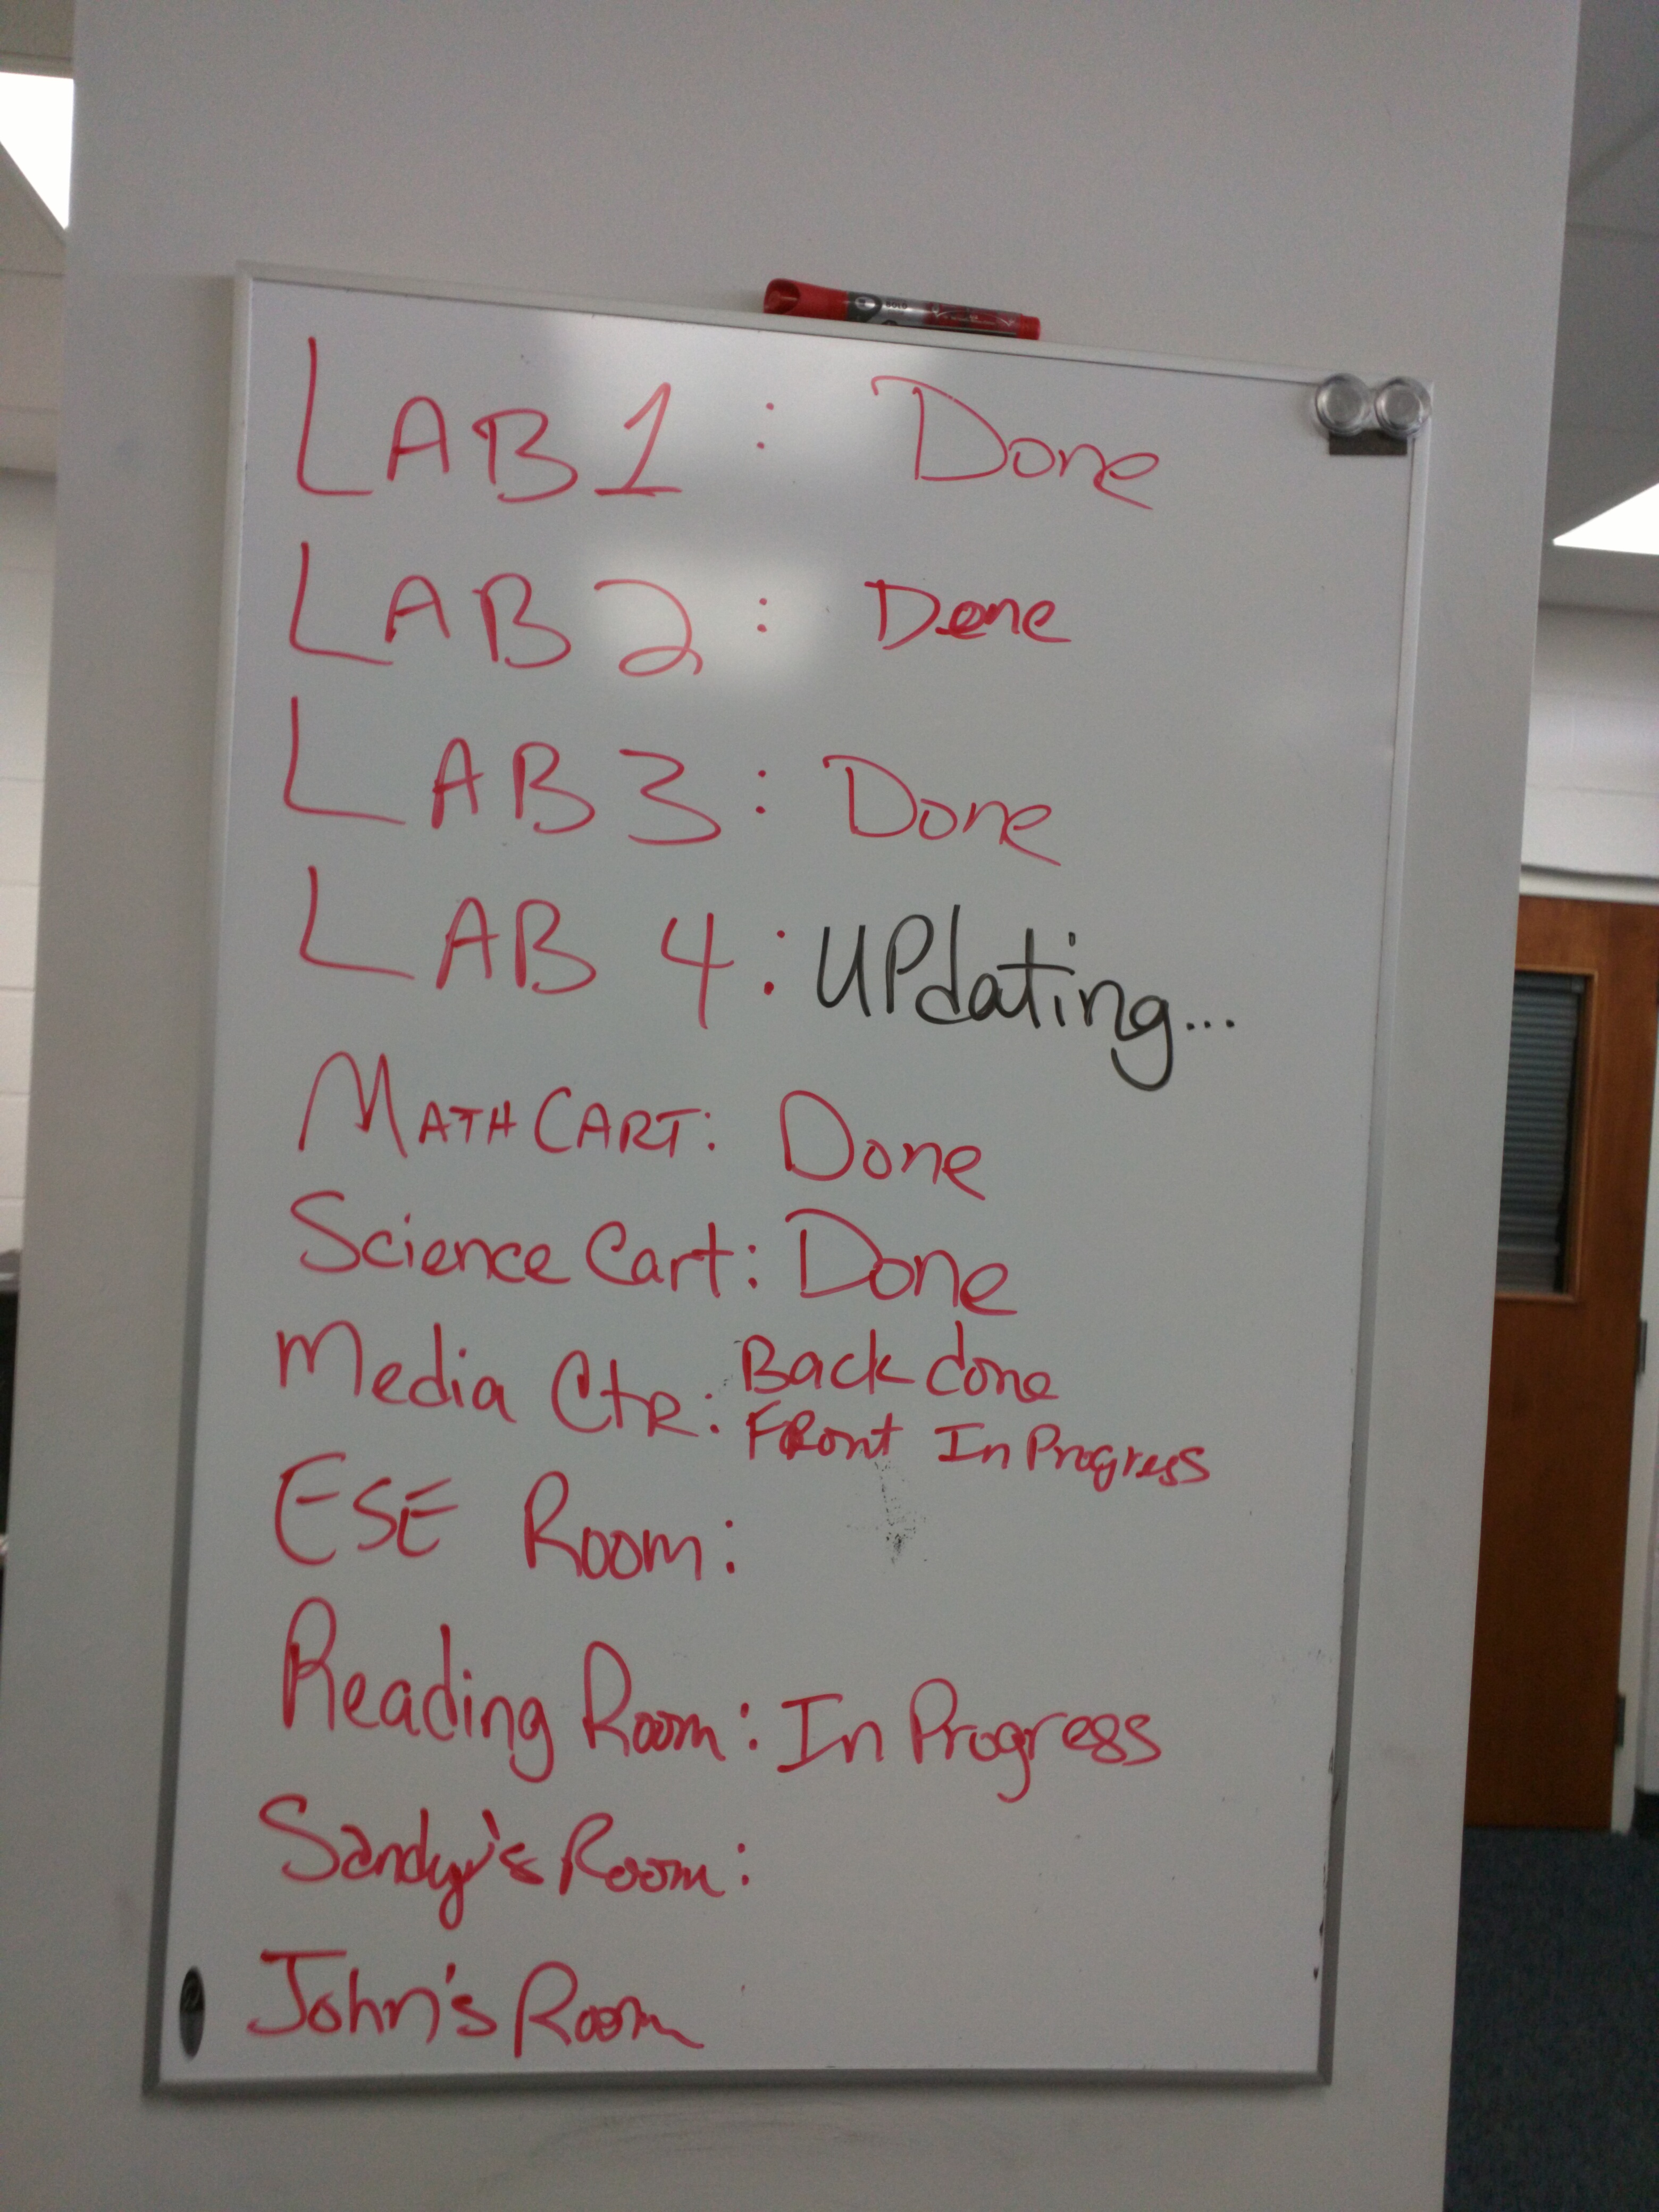 LAB 1: Done
LAB 2: Done
LAB 3: Done
LAB 4: UPdating...
MATH CART: Done
Science Cart: Done
Media CtR: Back done
FRont In Progress
ESE Room:
Reading Room: In Progress
Sandy's Room:
John's Room